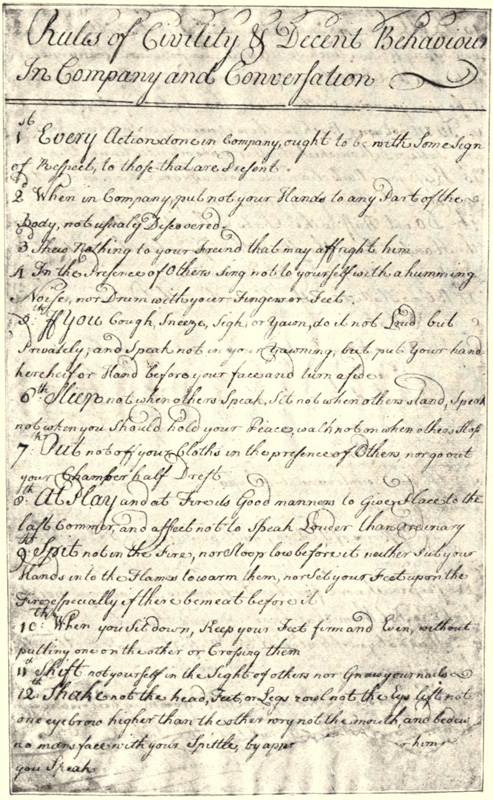 Rules of Civility & Decent Behaviour
In Company and Conversation
1st Every Action done in Company, ought to be with Some Sign
of Respect, to those that are Present.
2d When in Company, put not your Hands to any Part of the
Body, not usualy Discovered.
3d Shew Nothing to your Freind that may affright him.
4 In the Presence of Others Sing not to yourself with a humming
Noise, nor Drum with your Fingers or Feet.
5th If You Cough, Sneeze, Sigh, or Yawn, do it not Loud but
Privately; and Speak not in your Yawning, but put Your hand
kercheif or Hand before your face and turn aside
6th Sleep not when others Speak, Sit not when others stand, Speak
not when you Should hold your Peace, walk not on when others Stop
7th Put not off your Cloths in the presence of Others, nor go out
your Chamber half Drest
8th At Play and at Fire its Good manners to Give Place to the
last Commer, and affect not to Speak Louder than Ordinary
9th Spit not in the Fire, nor Stoop low before it neither Put your
Hands into the Flames to warm them, nor Set your Feet upon the
Fire especially if there be meat before it
10th When you Sit down, Keep your Feet firm and Even, without
putting one on the other or Crossing them
11th Shift not yourself in the Sight of others nor Gnaw your nails
12th Shake not the head, Feet, or Legs rowl not the Eys lift not
one eyebrow higher than the other wry not the mouth, and bedew
no mans face with your Spittle, by app r him
you Speak